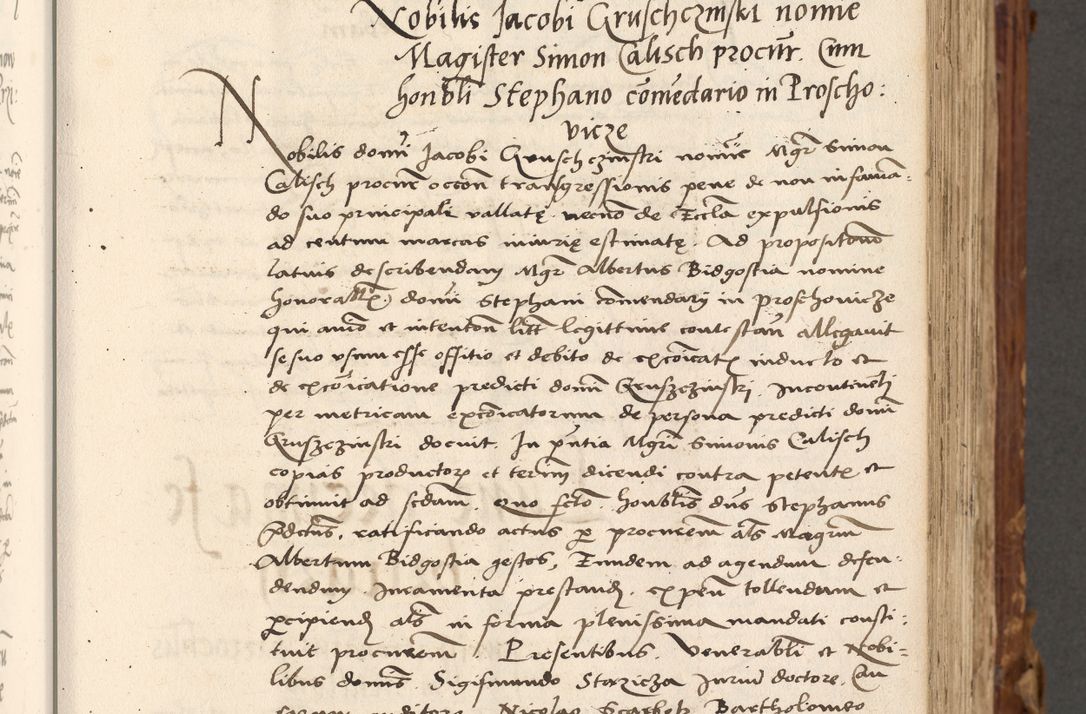 Nobilis Jacobi Gruschczinski nomine
Magister Simon Calisch procur. Cum
honbli Stephano comedario in Proscho:
vicze
Nobilis domi Jacobi Gruschczinski nomine Mgr Simon
Calisch procur occon transgressionis pene de non infaman-
do suo principali vallatę necno de Eccla expulsionis
ad centum marcas iniurię estimatę. Ad propositono
latius describendam Mgr Albertus Bidgostia nomine
honorabl domi Stephani comendarij in proschouicze
qui animo et intenton litt legittime contestan allegauit
se suo vsum esse offitio et debito de exconicat inducto et
de exconicatione predicti domi Gruszczinski. Incontinenti
per metricam exconicatorum de persona predicti domi
Gruszczinski docuit. In pntia Mgri Simonis Calisch
copias productor et termi dicendi contra petente et
obtinuit ad scdam. Quo fcto honblis dns Stephanus
pdctus, ratificando actus per procurem als Magrum
Albertum Bidgostia gestos, Eundem ad agendum defen-
dendum Iuramenta prestand. expen tollendum et
percipiend als in forma plenissima mandati consti-
tuit procurem. Presentibus. Venerabli et Nobi-
libus domis. Sigismundo Starzicza Iurium doctore, Can
Nicolao Scarbek Bartholomeo